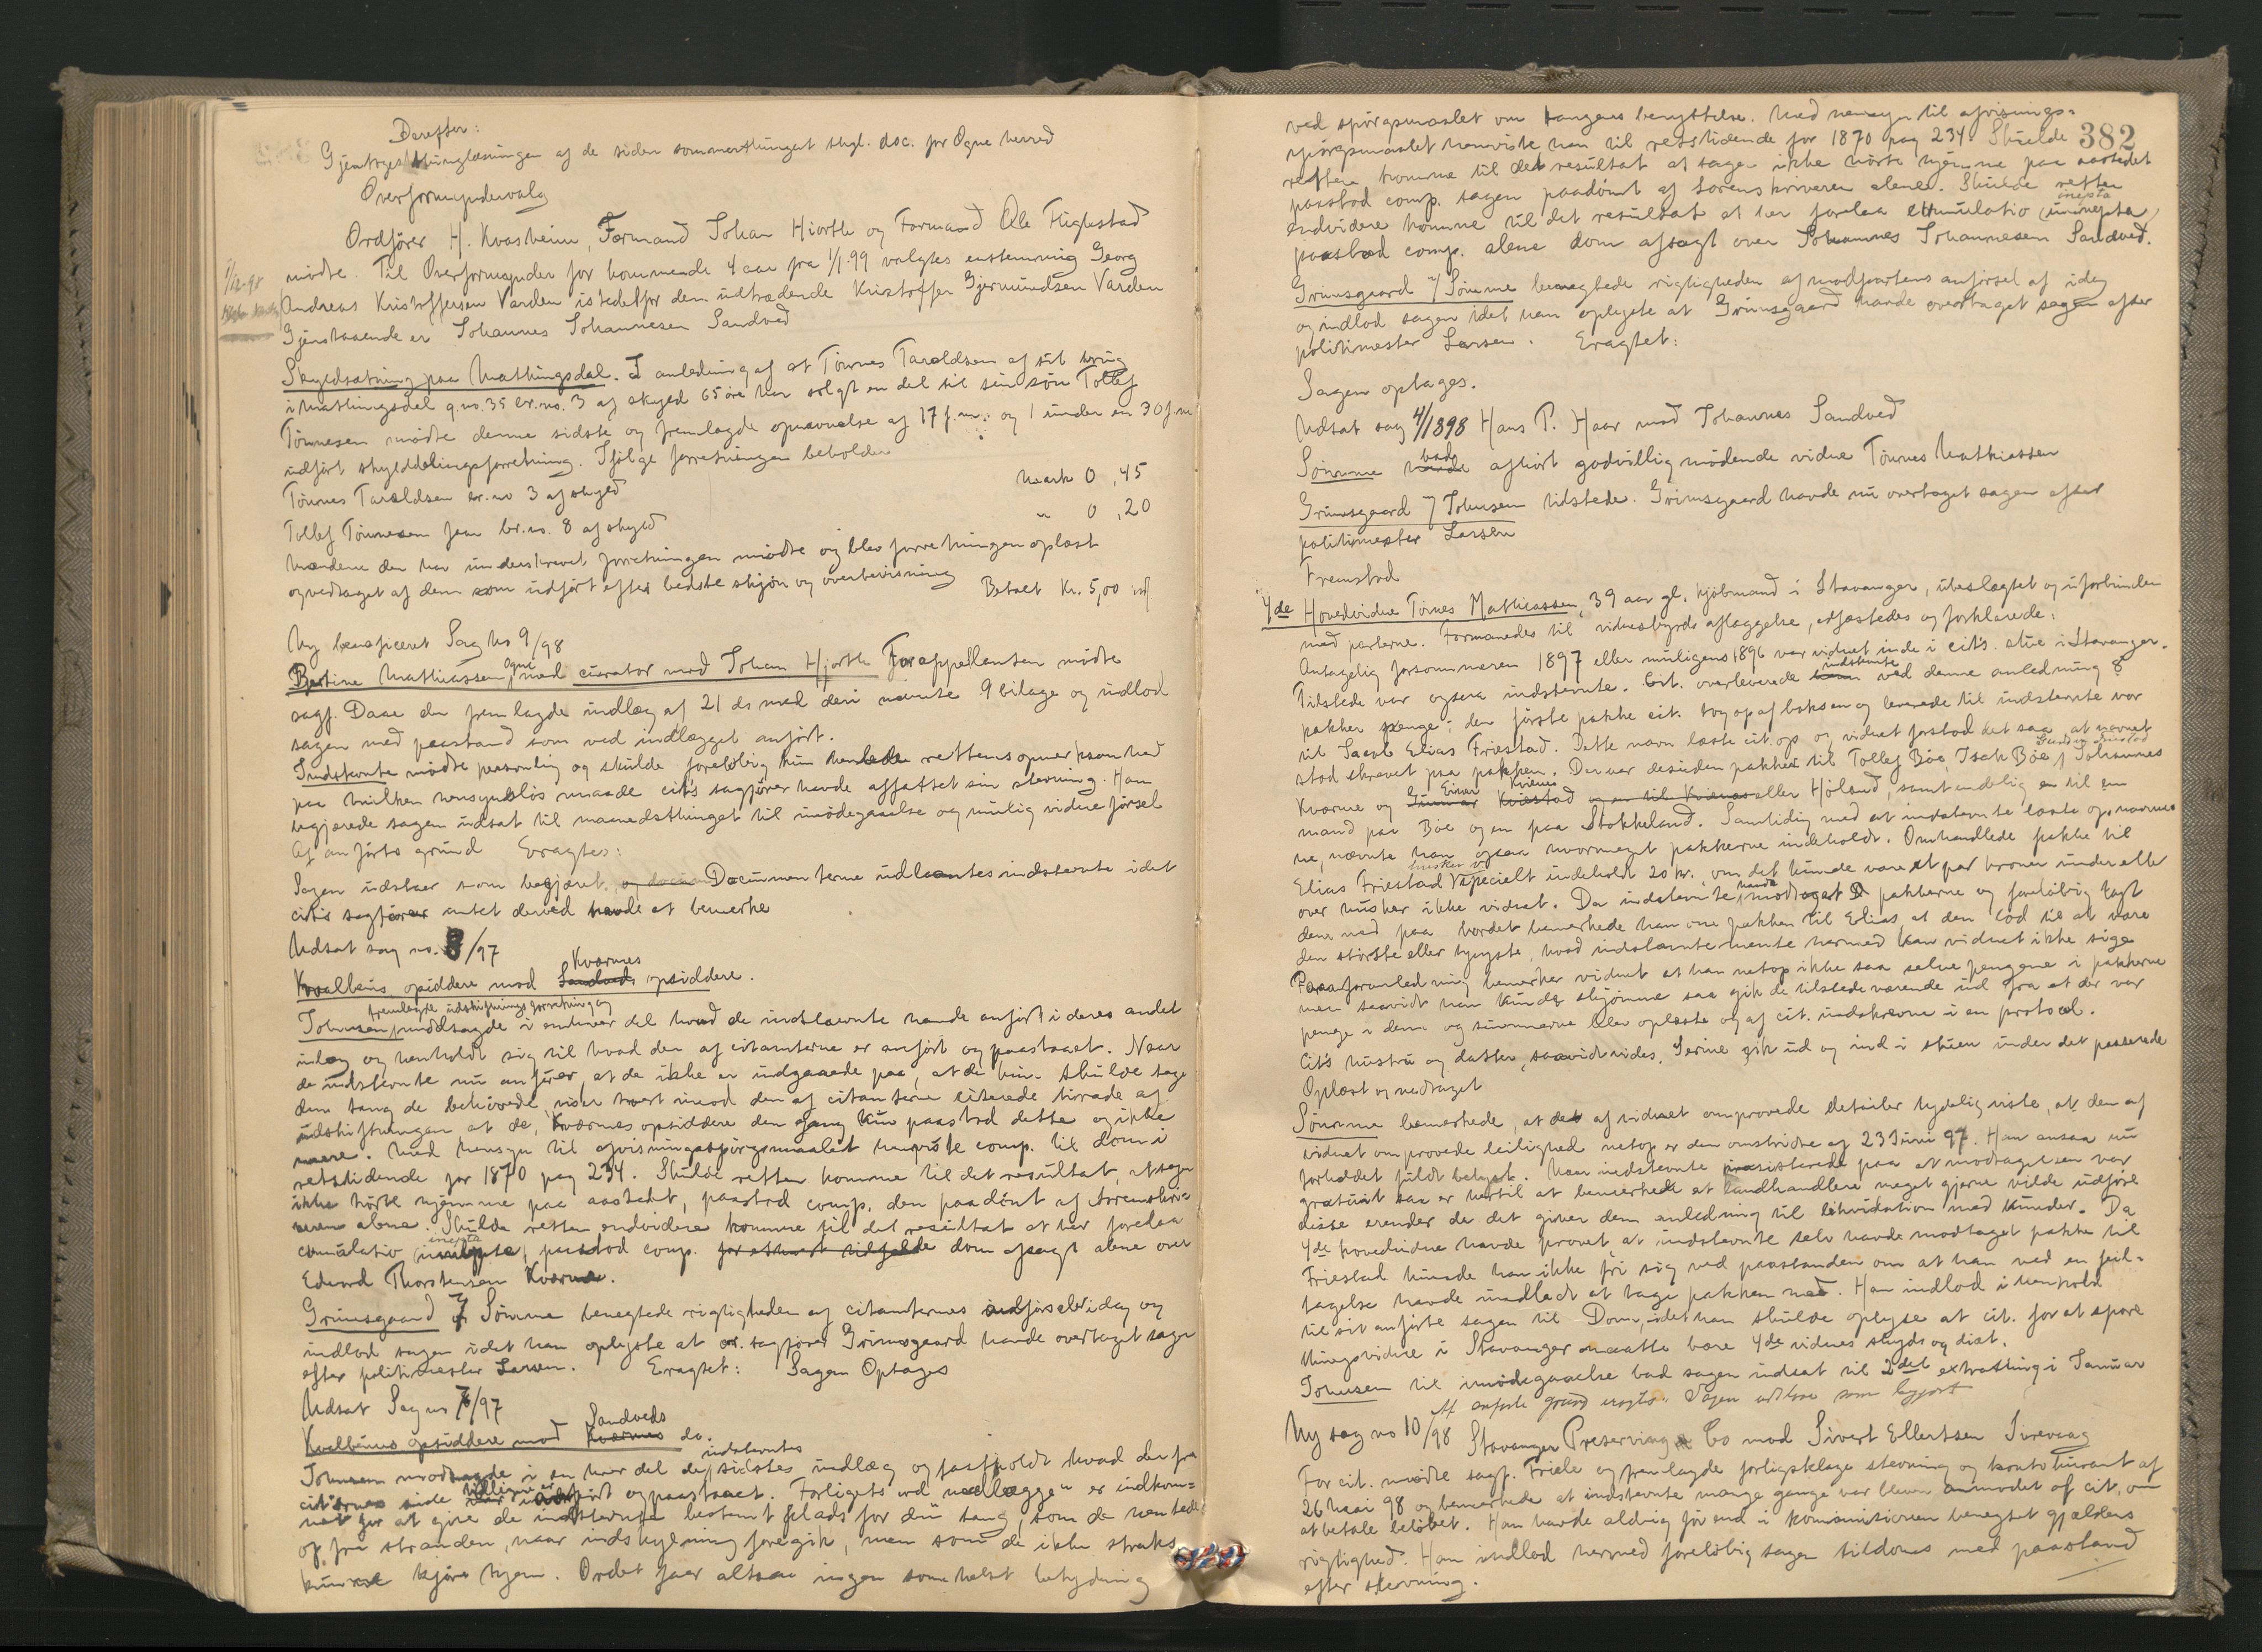 Derefter:
Gjentages thinglæsningen af de siden sommerthinget thgl. doc. for Ogne herred
Overformyndervalg
Ordfører H. Kvasheim, Formand Johan Hiorth og Formand Ole Fuglestad
mødte. Til Overformynder for kommende 4 aar fra 1/1.99 valgtes enstemmig Georg
Andreas Kristoffersen Varden istedetfor den udtrædende Kristoffer Gjermundsen Varden
Gjenstaaende er Johannes Johannesen Sandved
Skyldsætning paa Mathingsdal. I anledning af at Tönnes Taraldsen af sit brug
i Mathingsdal g.no. 35 br.no. 3 af skyld 65 öre har solgt en del til sin sön Tollef
Tönnesen mødte denne sidste og fremlagde opnævnelse af 17 f.m. og 1 under en 30 f.m
udført skylddelingsforretning. Ifölge forretningen beholder
Tönnes Taraldsen br.no 3 af skyld mark 0,45
Tollef Tönnesen faar br.no. 8 af skyld " 0,20
Mændene der har underskrevet forretningen mødte og blev forretningen oplæst
og vedtaget af dem som udført efter bedste skjön og overbevisning Betalt Kr. 5,00
Ny beneficeret Sag No 9/98
Bertine Mathiassen Ogne med curator mod Johan Hjorth For appellenten mødte
sagf. Daae der fremlagde indlæg af 21 ds med deri nævnte 9 bilage og indlod
sagen med paastand som ved indlægget anført.
Indstevnte mødte personlig og skulde foreløbig kun henlede rettens opmerksomhed
paa hvilken hensynsløs maade cit's sagfører havde affattet sin stevning. Han
begjærede sagen udsat til maanedsthinget til imødegaaelse og mulig vidneförsel
Af anførte grund Eragtes:
Sagen udstaar som begjæret. og docum Documenterne udlaantes indstevnte idet
cit's sagfører intet derved havde at bemerke
Udsat sag no. 8/97
Kvalbeins opsiddere mod Sandveds Kværnes opsiddere.
Johnsen fremlagde udskiftningsforretning og modsagde i enhver del hvad de indstævnte havde anført i deres andet
indlæg og henholdt sig til hvad der af citanterne er anført og paastaaet. Naar
de indstevnte nu anfører, at de ikke er indgaaede paa, at de kun skulde tage
den tang de behövede, viser tvert imod den af citanterne citerede tirade af
udskiftningen at de, Kværnes opsiddere den gang kun paastod dette og ikke
mere. Med hensyn til afvisningsspörgsmaalet henviste comp. til dom i
retstidende for 1870 pag 234. Skulde retten komme til det resultat, at sagen
ikke hörte hjemme paa aastedet, paastod comp. den paadömt af Sorenskri-
veren alene. Skulde retten endvidere komme til det resultat at her forelaa
cumulatio inepta, paastod comp. for ethvert tilfælde dom afsagt alene over
Edvard Thorstensen Kværne.
Grimsgaard 7 Sömme benegtede rigtigheden af citanternes anförsel idag og
indlod sagen idet han oplyste at or. sagfører Grimsgaard havde overtaget sagen
efter politimester Larsen. Eragtet: Sagen Optages
Udsat Sag no 7/97
Kvalbeins opsiddere mod Kværnes Sandveds do.
Johnsen modsagde i en hver del de indstevntes sidstes indlæg og fastholdt hvad der fra
cit'ernes side tidligere er anført og paastaaet. Forligets ord "nedlægge" er indkom-
met for at give de indstevnte bestemt plads for den tang, som de hentede
op fra stranden, naar indskylning foregik, men som de ikke straks
kunde kjöre hjem. Ordet faar altsaa ingen somhelst betydning
382
ved spörgsmaalet om tangens benyttelse. Med hensyn til afvisnings-
spörgsmaalet henviste han til retstidende for 1870 pag 234. Skulde
retten komme til det resultat at sagen ikke hörte hjemme paa aastedet
paastod comp. sagen paadömt af Sorenskriveren alene. Skulde retten
endvidere komme til det resultat at her forelaa cumulatio inepta
paastod comp. alene dom afsagt over Johannes Johannesen Sandved.
Grimsgaard 7 Sömme benegtede rigtigheden af modpartens anførsel af idag
og indlod sagen idet han oplyste at Grimsgaard havde overtaget sagen efter
politimester Larsen. Eragtet:
Sagen optages.
Udsat sag 4/1898 Hans P. Haar mod Johannes Sandved
Sömme bad afhört godvillig mödende vidne Tönnes Mathiassen
Grimsgaard 7 Johnsen tilstede. Grimsgaard havde nu overtaget sagen efter
politimester Larsen
Fremstod
4de Hovedvidne Tönes Mathiassen, 39 aar gl. kjöbmand i Stavanger, ubeslægtet og uforbunden
med parterne. Formanedes til vidnesbyrds aflæggelse, edfæstedes og forklarede:
Antagelig forsommeren 1897 eller muligens 1896 var vidnet inde i cit's. stue i Stavanger.
Tilstede var ogsaa indstevnte. Cit. overleverede indstevnte ved denne anledning 8
pakker penge; den förste pakke cit. tog op af boksen og leverede til indstevnte var
til Jacob Elias Friestad. Dette navn læste cit. op og vidnet forstod det saa at navnet
stod skrevet paa pakken. Der var desuden pakker til Tollef Böe, Isak Böe, Johannes
Kværne og Einar Kvienes eller Höland, samt endelig en til en
mand paa Böe og en paa Stokkeland. Samtidig med at indstevnte læste op navne-
ne, nævnte han ogsaa hvormeget pakkerne indeholdt. Omhandlede pakke til
Elias Friestad husker v. specielt indeholdt 20 kr., om det kunde være et par kroner under eller
over husker ikke vidnet. Da indstevnte havde modtaget pakkerne og foreløbig lagt
dem ned paa bordet bemerkede han om pakken til Elias at den lod til at være
den störste eller tyngste, hvad indstævnte mente hermed kan vidnet ikke sige
Paa foranledning bemerker vidnet at han netop ikke saa selve pengene i pakkerne
men saavidt han kunde skjönne saa gik de tilstedeværende ud fra at der var
penge i dem og summerne blev oplæste og af cit. indskrevne i en protocol.
Cit's hustru og datter, saavidt vides, Serine gik ud og ind i stuen under det passerede
Oplæst og vedtaget
Sömme bemerkede, at det af vidnet omprovede detailer tydelig viste, at den af
vidnet omprovede leilighed netop er den omstridte af 23 Juni 97. Han ansaa nu
forholdet fuldt belyst. Naar indstevnte insisterede paa at modtagelsen var
gratuit saa er hertil at bemerke at landhandlere meget gjerne vilde udföre
disse erender da det giver dem anledning til likvidation med kunder. Da
4de hovedvidne havde provet at indstevnte selv havde modtaget pakke til
Friestad kunde han ikke fri sig ved paastanden om at han ved en feil-
tagelse havde undladt at tage pakken med. Han indlod i henhold
til sit anförte sagen til Dom, idet han skulde oplyse at cit. for at spare
thingsvidne i Stavanger maatte bære 4de vidnes skyds og diæt.
Johnsen til imødegaaelse bad sagen udsat til 2det extrathing i Januar
Af anførte grund eragtes: Sagen udstaar som begjært
Ny sag no 10/98 Stavanger Preserving Co mod Sivert Ellertsen Sirevaag
For cit. mødte sagf. Friele og fremlagde forligsklage stevning og kontokurant af
26 Mai 98 og bemerkede at indstevnte mange gange var bleven anmodet af cit, om
at betale belöbet. Han havde aldrig för end i kommissionen benegtet gjældens
rigtighed. Han indlod hermed foreløbig sagen til doms med paastand
efter stevning.